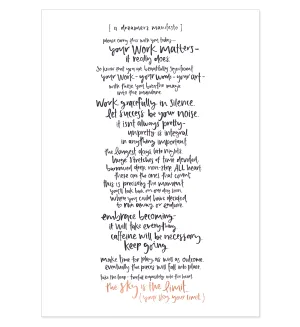 [ a dreamers manifesto ]
please carry this with you today—
your work matters—
it really does.
so know that you are beautifully significant
your work - your words - your art -
with these you breathe image
into the mundane.
work gracefully in silence.
let success be your noise.
it isn't always pretty—
unpretty is integral
in anything important
the longest days late nights
huge stretches of time devoted.
burnround days non-stop ALL heart
these are the ones that count
this is precisely the moment
you'll look back on one day soon
where you could have decided
to run away or endure.
embrace becoming—
it will take everything
caffeine will be necessary.
keep going.
make time for play as well as outcome.
eventually the pieces will fall into place.
take the leap -
the sky is the limit.
(your sky, your limit.)